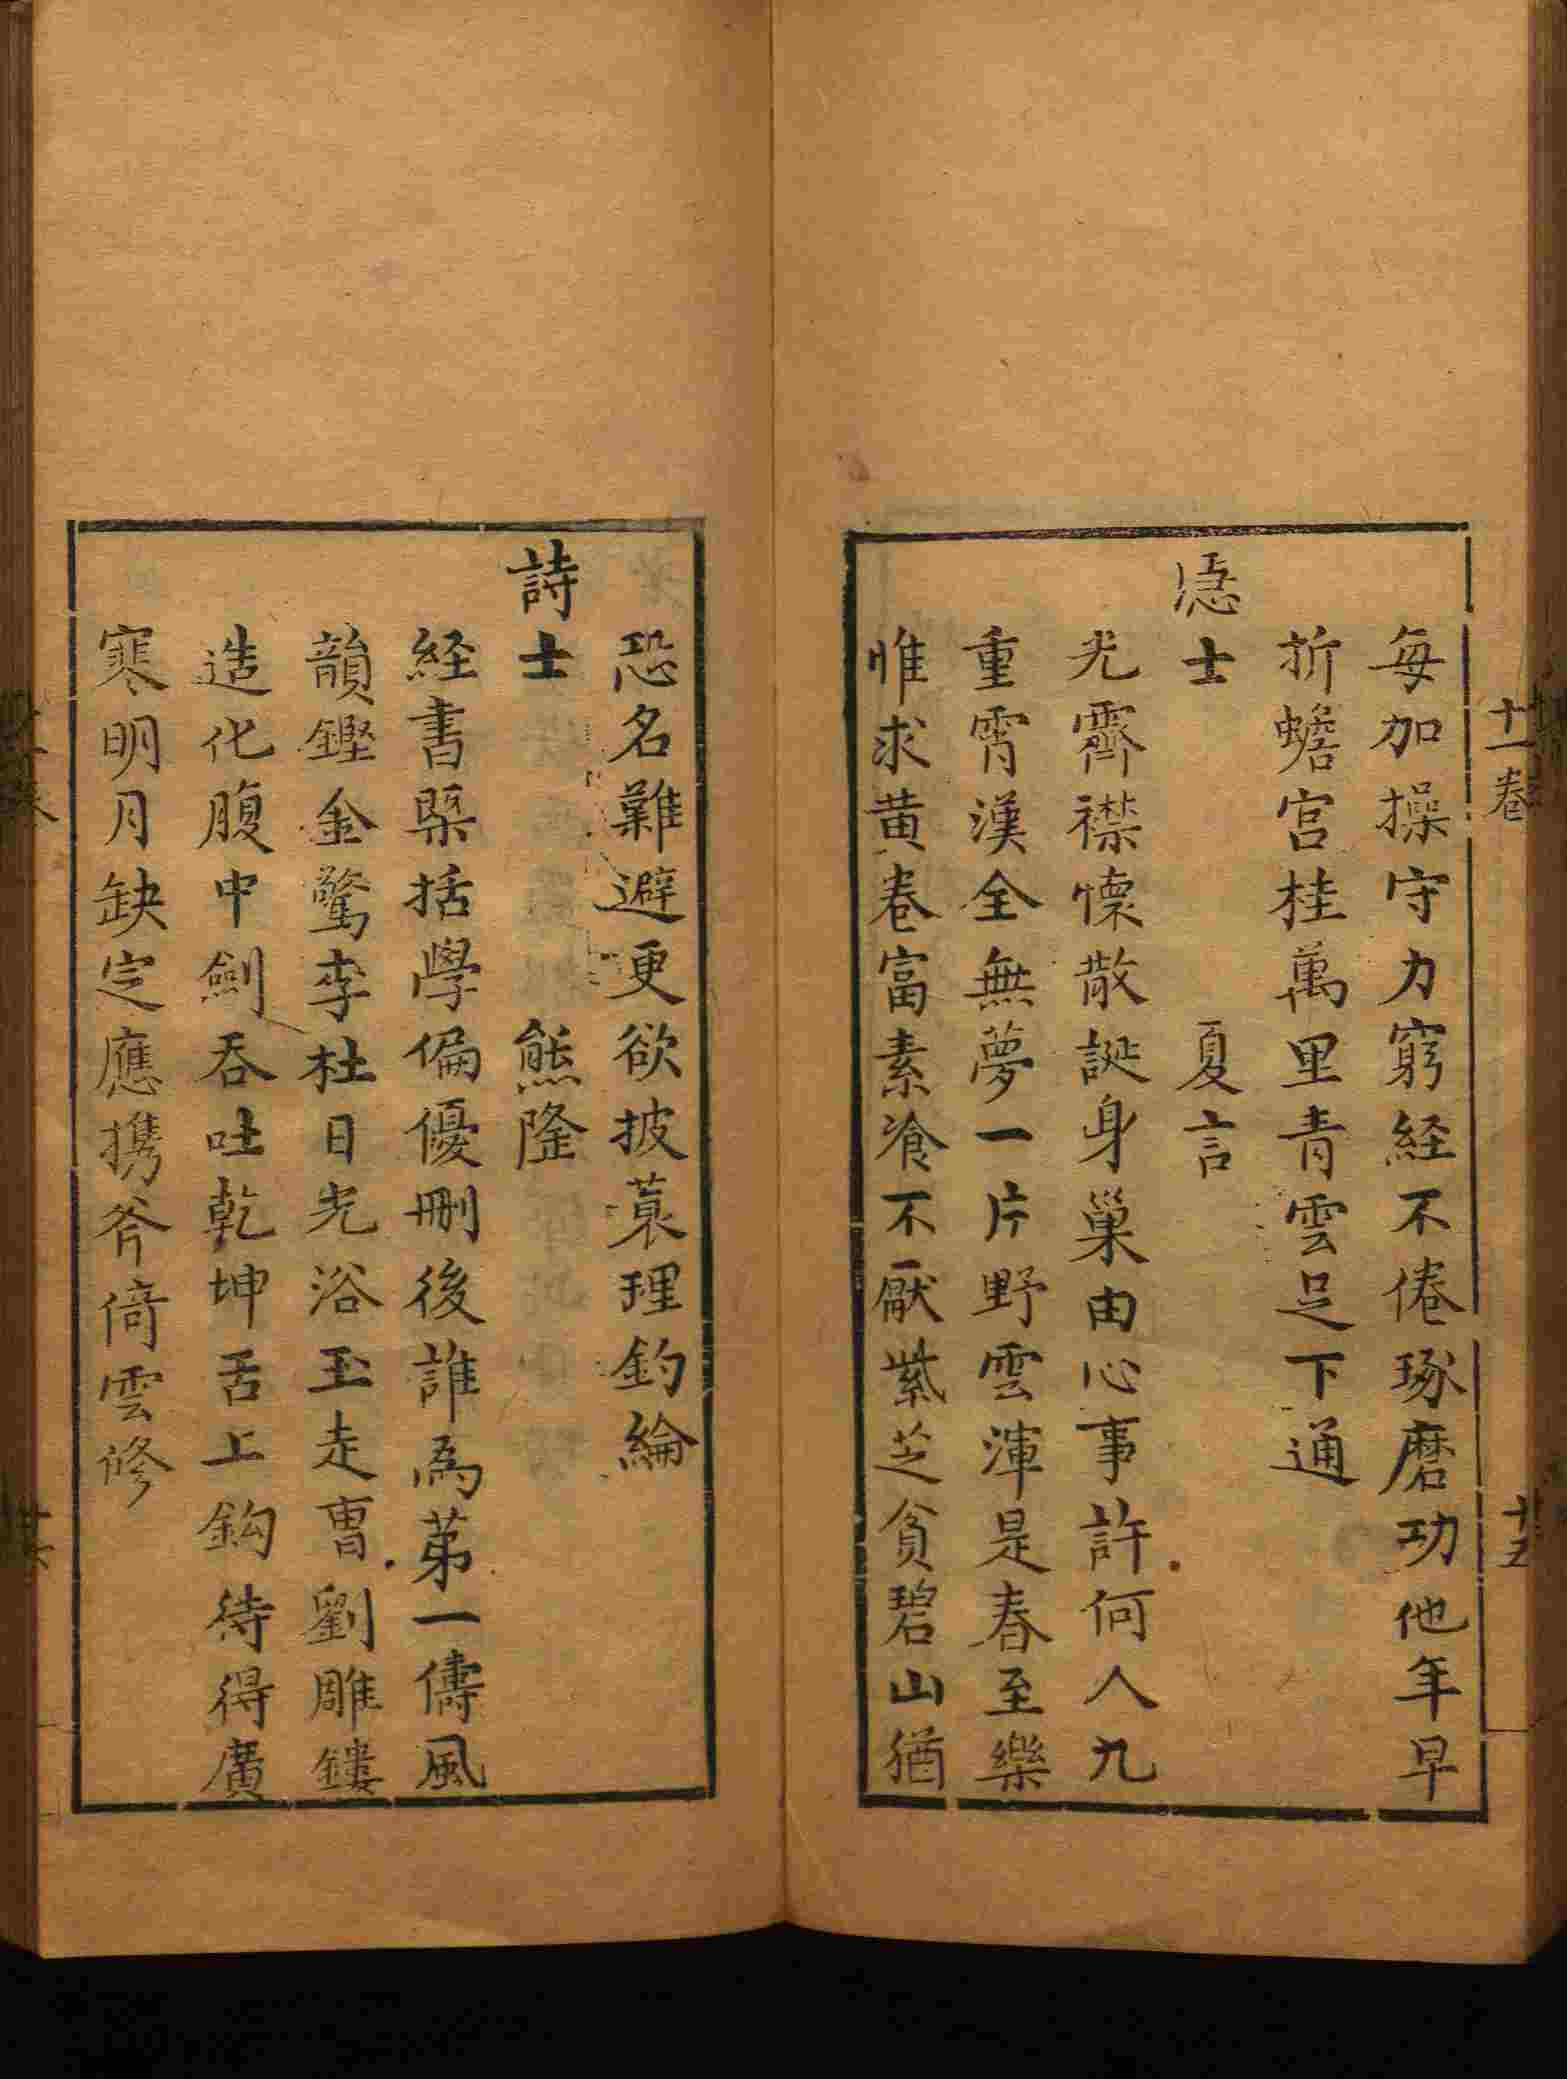 十一卷
十五
每加操守力窮経不倦琢磨功他年早
折蟾宮桂萬里青雲足下通
隱士 夏言
光霽襟懷散誕身巢由心事許何人九
重霄漢全無夢一片野雲渾是春至樂
惟求黄卷富素飡不厭紫芝貧碧山猶
恐名難避更欲披蓑理釣綸
詩士 熊隆
経書槩括學偏優刪後誰爲苐一儔風
韻鏗金驚李杜日光浴玉走曹劉雕鏤
造化腹中劍吞吐乾坤舌上鈎待得廣
寒明月缺定應携斧倚雲修